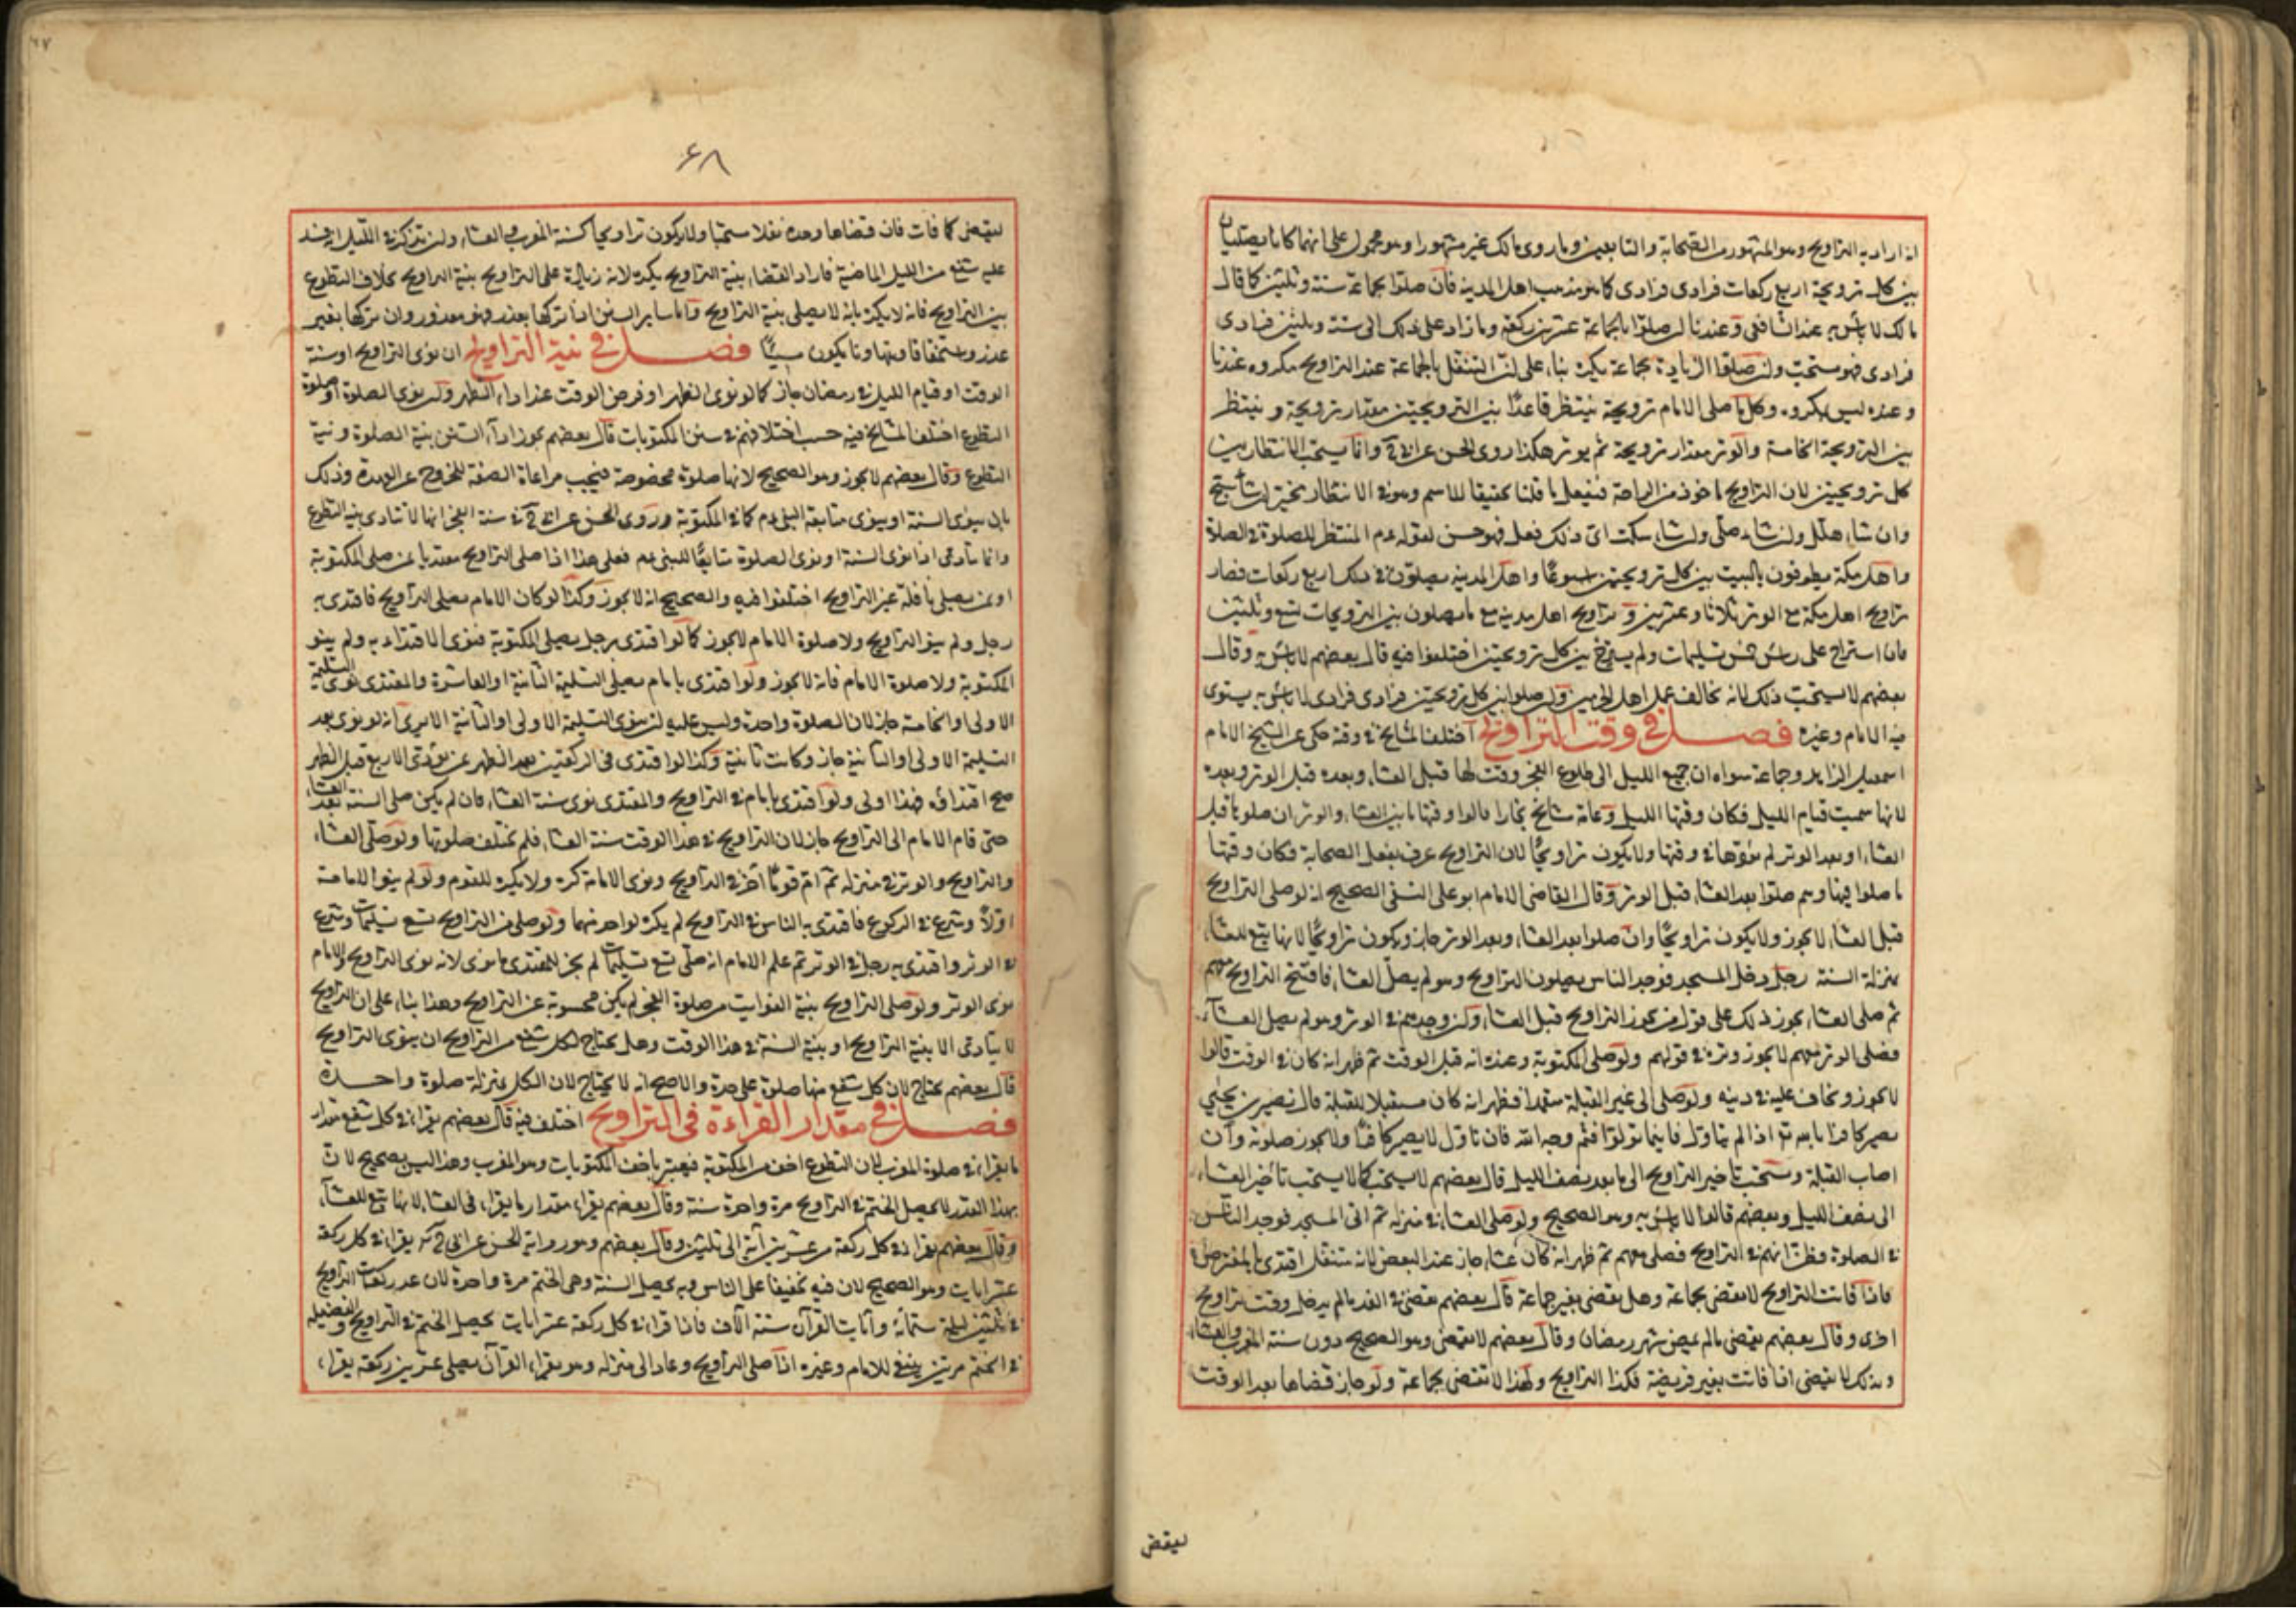 انه اراد به التراويح وهو المشهور من الصحابة والتابعين وما روى مالك غير مشهور او هو محمول على انهما كانا يصليان
بين كل ترويحة اربع ركعات فرادى فرادى كما هو مذهب اهل المدينة فان صلوا بجماعة ستة وثلثين كما قال
مالك لا باس به عند الشافعي وعندنا ان صلوا بالجماعة عشرين ركعة وما زاد على ذلك الى ستة وثلثين فرادى
فرادى فهو مستحب وان صلوا الزيادة بجماعة يكره بناء على ان التنفل بالجماعة عند التراويح مكروه عندنا
وعنده ليس بمكروه وكل ما صلى الامام ترويحة ينتظر قاعدا بين الترويحتين مقدار ترويحة وينتظر
بين الترويحة الخامسة والوتر مقدار ترويحة ثم يوتر هكذا روى الحسن عن ابي ح وانما يستحب الانتظار بين
كل ترويحتين لان التراويح ماخوذ من الراحة فيفعل ما قلنا تحقيقا للاسم وهو في الانتظار مخير ان شاء سبح
وان شاء هلل وان شاء صلى وان شاء سكت اى ذلك فعل فهو حسن لقوله عم المنتظر للصلوة في الصلاة
واهل مكة يطوفون بالبيت بين كل ترويحتين اسبوعا واهل المدينة يصلون في ذلك اربع ركعات فصار
تراويح اهل مكة مع الوتر ثلاثا وعشرين و تراويح اهل مدينة مع ما يصلون بين الترويحات تسع وثلثين
فان استراح على راس خمس تسليمات ولم يسترح بين كل ترويحتين اختلفوا فيه قال بعضهم لا باس به وقال
بعضهم لا يستحب ذلك لانه مخالف عمل اهل الحرمين وان صلوا بين كل ترويحتين فرادى فرادى لا باس به يستوى
فيه الامام وغيره فصل في وقت التراويح اختلف المشايخ في وقته حكى عن الشيخ الامام
اسمعيل الزاهد وجماعة سواه ان جميع الليل الى طلوع الفجر وقت لها قبل العشاء وبعده قبل الوتر وبعده
لانها سميت قيام الليل فكان وقتها الليل وعامة مشايخ بخارا قالوا وقتها ما بين العشاء والوتر ان صلوها قبل
العشاء او بعد الوتر لم يؤدها في وقتها ولا يكون تراويحا لان التراويح عرف بفعل الصحابة فكان وقتها
ما صلوا فيها وهم صلوا بعد العشاء قبل الوتر وقال القاضى الامام ابو على النسفى الصحيح انه لو صلى التراويح
قبل العشاء لا يجوز ولا يكون تراويحا وان صلوا بعد العشاء وبعد الوتر جاز ويكون تراويحا لانها تبع للعشاء
بمنزلة السنة رجل دخل المسجد فوجد الناس يصلون التراويح وهو لم يصل العشاء فافتتح التراويح معهم
ثم صلى العشاء يجوز ذلك على قول من يجوز التراويح قبل العشاء ولو وجدهم في الوتر وهو لم يصل العشاء
فصلى الوتر معهم لا يجوز وتره في قولهم ولو صلى المكتوبة وعنده انه قبل الوقت ثم ظهر انه كان في الوقت قالوا
لا يجوز ويخاف عليه في دينه ولو صلى الى غير القبلة متعمدا فظهر انه كان مستقبلا للقبلة قال نصير بن يحيى
يصير كافرا بالله تع اذا لم يتاول فاينما تولوا فثم وجه الله فان تاول لا يصير كافرا ولا يجوز صلوته وان
اصاب القبلة ويستحب تاخير التراويح الى ما بعد نصف الليل قال بعضهم لا يستحب كما لا يستحب تأخير العشاء
الى نصف الليل وبعضهم قالوا لا باس به وهو الصحيح ولو صلى العشاء في منزله ثم اتى المسجد فوجد الناس
في الصلوة فظن انهم في التراويح فصلى معهم ثم ظهر انه كان عشاء جاز عند البعض لانه متنفل اقتدى بالمفترض
فاذا فاتت التراويح لا تقضى بجماعة وهل تقضى بغير جماعة قال بعضهم تقضى في الغد ما لم يدخل وقت تراويح
اخرى وقال بعضهم يقضى ما لم يمض شهر رمضان وقال بعضهم لا تقضى وهو الصحيح دون سنة المغرب والعشاء
وتلك لا تقضى اذا فاتت بغير فريضة فكذا التراويح ولهذا لا تقضى بجماعة ولو جاز قضاها بعد الوقت
ليقضى
٦٨
ليقضى كما فات فان قضاها وحده نفلا مستحبا ولا يكون تراويحا كسنة المغرب والعشاء وان تذكر في الليل انه فسد
عليه شفع من الليل الماضية فاراد القضاء بنية التراويح يكره لانه زيادة على التراويح بنية التراويح بخلاف التطوع
بين التراويح فانه لا يكره بانه لا يصلى بنية التراويح واما ساير السنن اذا تركها بعذر فهو معذور وان تركها بغير
عذر ومستخفا قا وتهاونا يكون مسيئا فصل في نية التراويح ان نوى التراويح او سنة
الوقت او قيام الليل في رمضان جاز كما لو نوى الظهر او فرض الوقت عند اداء الظهر ولو نوى الصلوة او صلوة
التطوع اختلف المشايخ فيه حسب اختلافهم في سنن المكتوبات قال بعضهم يجوز اداء السنن بنية الصلوة ونية
التطوع وقال بعضهم لا يجوز وهو الصحيح لانها صلوة مخصوصة فيجب مراعاة الصفة للخروج عن العهدة وذلك
بان ينوى السنة او ينوى متابعة النبى عم كما في المكتوبة وروى الحسن عن ابي ح في سنة الفجر انها لا تتادى بنية التطوع
وانما تتادى اذا نوى السنة او نوى الصلوة متابعا للنبى عم فعلى هذا اذا صلى التراويح مقتديا بمن صلى المكتوبة
او بمن يصلى نافلة غير التراويح اختلفوا فيه والصحيح انه لا يجوز وكذا لو كان الامام يصلى التراويح فاقتدى به
رجل ولم ينو التراويح ولا صلوة الامام لا يجوز كما لو اقتدى برجل يصلى المكتوبة فنوى الاقتداء به ولم ينو
المكتوبة ولا صلوة الامام فانه لا يجوز ولو اقتدى بامام يصلى التسليمة الثانية او العاشرة والمقتدى نوى التسليمة
الاولى او الخامسة جاز لان الصلوة واحدة وليس عليه ان ينوى التسليمة الاولى او الثانية الا يرى انه لو نوى بعد
التسليمة الاولى او الثانية جاز وكانت ثانية وكذا لو اقتدى في الركعتين بعد الظهر عن يؤدى الاربع قبل الظهر
صح اقتداؤه فهذا اولى ولو اقتدى بامام في التراويح والمقتدى نوى سنة العشاء فان لم يكن صلى السنة بعد العشاء
حتى قام الامام الى التراويح جاز لان التراويح في هذا الوقت سنة العشاء فلم تختلف صلوتها ولو صلى العشاء
والتراويح والوتر في منزله ثم ام قوما اخر في التراويح ونوى الامامة كره ولا يكره للقوم ولو لم ينو الامامة
اولا وشرع في الركوع فاقتدى به الناس في التراويح لم يكره لواحد منهما ولو صلى من التراويح تسع تسليمات وشرع
في الوتر واقتدى به رجل في الوتر ثم علم الامام انه صلى تسع تسليمات لم يجز للمقتدى ما نوى لانه نوى التراويح والامام
نوى الوتر ولو صلى التراويح بنية الفوايت من صلوة الفجر لم يكن محسوبة عن التراويح وهذا بناء على ان التراويح
لا يتادى الا بنية التراويح او بنية السنة في هذا الوقت وهل يحتاج لكل شفع من التراويح ان ينوى التراويح
قال بعضهم يحتاج لان كل شفع منها صلوة على حدة والاصح انه لا يحتاج لان الكل بمنزلة صلوة واحدة
فصل في مقدار القراءة في التراويح اختلف فيه قال بعضهم يقراء في كل شفع مقدار
ما يقراء في صلوة المغرب لان التطوع اخف من المكتوبة فيعتبر باخف المكتوبات وهو المغرب وهذا ليس بصحيح لان
بهذا القدر لا يحصل الختم في التراويح مرة واحدة سنة وقال بعضهم يقراء مقدار ما يقراء في العشاء لانها تبع للعشاء
وقال بعضهم يقراء في كل ركعة من عشرين آية الى ثلثين وقال بعضهم وهو رواية الحسن عن ابى ح انه يقراء في كل ركعة
عشر ايات وهو الصحيح لان فيه تخفيفا على الناس وبه يحصل السنة وهى الختم مرة واحدة لان عدد ركعات التراويح
في ثلثين ليلة ستمائة وآيات القرآن ستة آلاف فاذا قراء في كل ركعة عشر ايات يحصل الختم في التراويح والفضيلة
في الختم مرتين ينبغى للامام وغيره اذا صلى التراويح وعاد الى منزله وهو يقراء القرآن يصلى عشرين ركعة يقراء